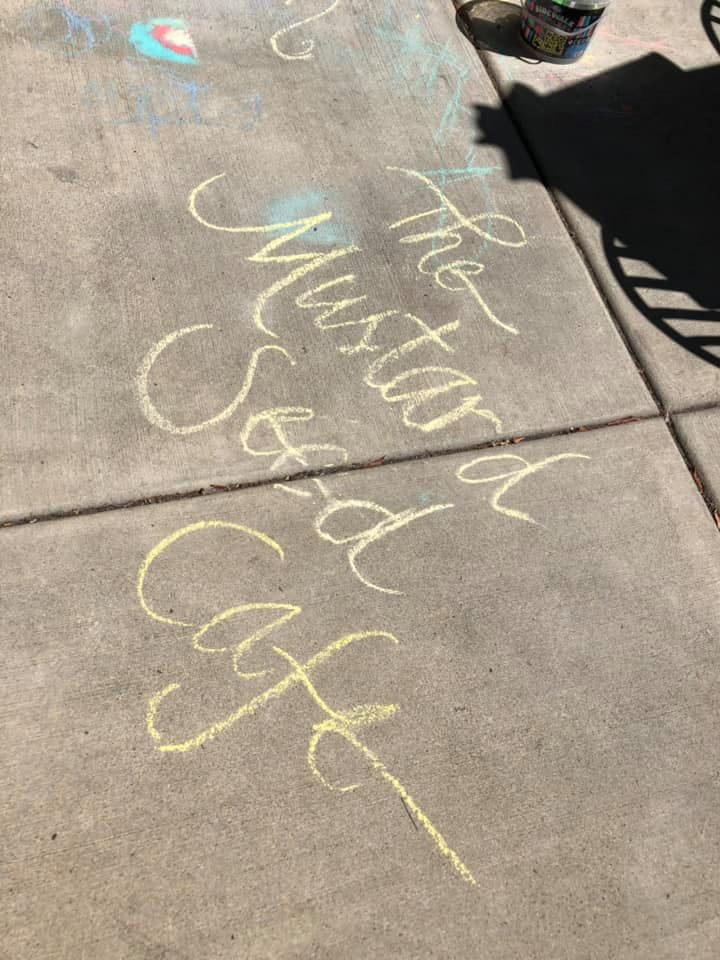 The
Mustard
Seed
Cafe
SIDEWALK